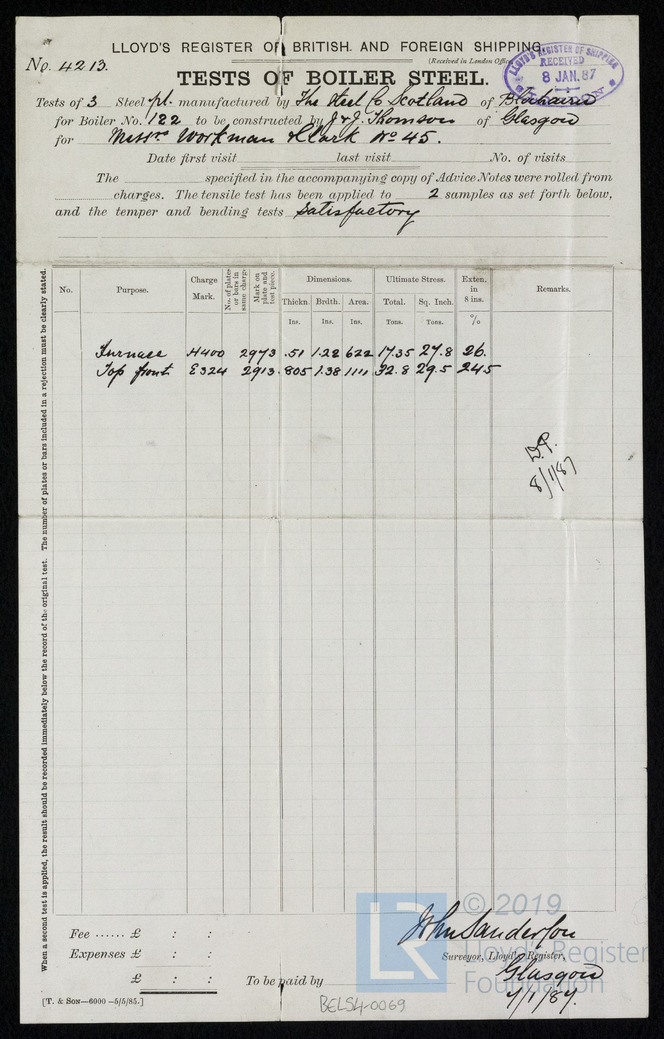 LLOYD'S REGISTER OF BRITISH AND FOREIGN SHIPPING.
(Received in London Office
LLOYD'S REGISTER OF SHIPPING
RECEIVED
8 JAN. 87
LONDON
No. 4213.
TESTS OF BOILER STEEL.
Tests of 3 Steel pl. manufactured by The Steel Co Scotland of Blochairn
for Boiler No. 122 to be constructed by J & J. Thomson of Glasgow
for Messrs Workman & Clark No 45.
Date first visit last visit No. of visits
The specified in the accompanying copy of Advice Notes were rolled from
charges. The tensile test has been applied to 2 samples as set forth below,
and the temper and bending tests Satisfactory
No. Purpose. Charge Mark. No. of plates or bars in same charge Mark on plate and test piece. Dimensions. Ultimate Stress. Exten. in 8 ins. Remarks.
Thickn. Brdth. Area. Total. Sq. Inch.
Ins. Ins. Ins. Tons. Tons. %
Furnace H400 2973 .51 1.22 622 17.35 27.8 26.
Top front E324 2913 .805 1.38 1111 32.8 29.5 24.5
D.P.
8/1/87
When a second test is applied, the result should be recorded immediately below the record of the original test. The number of plates or bars included in a rejection must be clearly stated.
Fee ...... £ : :
Expenses £ : :
£ : :
To be paid by
John Sanderson
Surveyor, Lloyd's Register,
Glasgow
7/1/87.
[T. & SON—6000—5/5/85.]
BELS4-0069
LR
© 2019
Lloyd's Register
Foundation